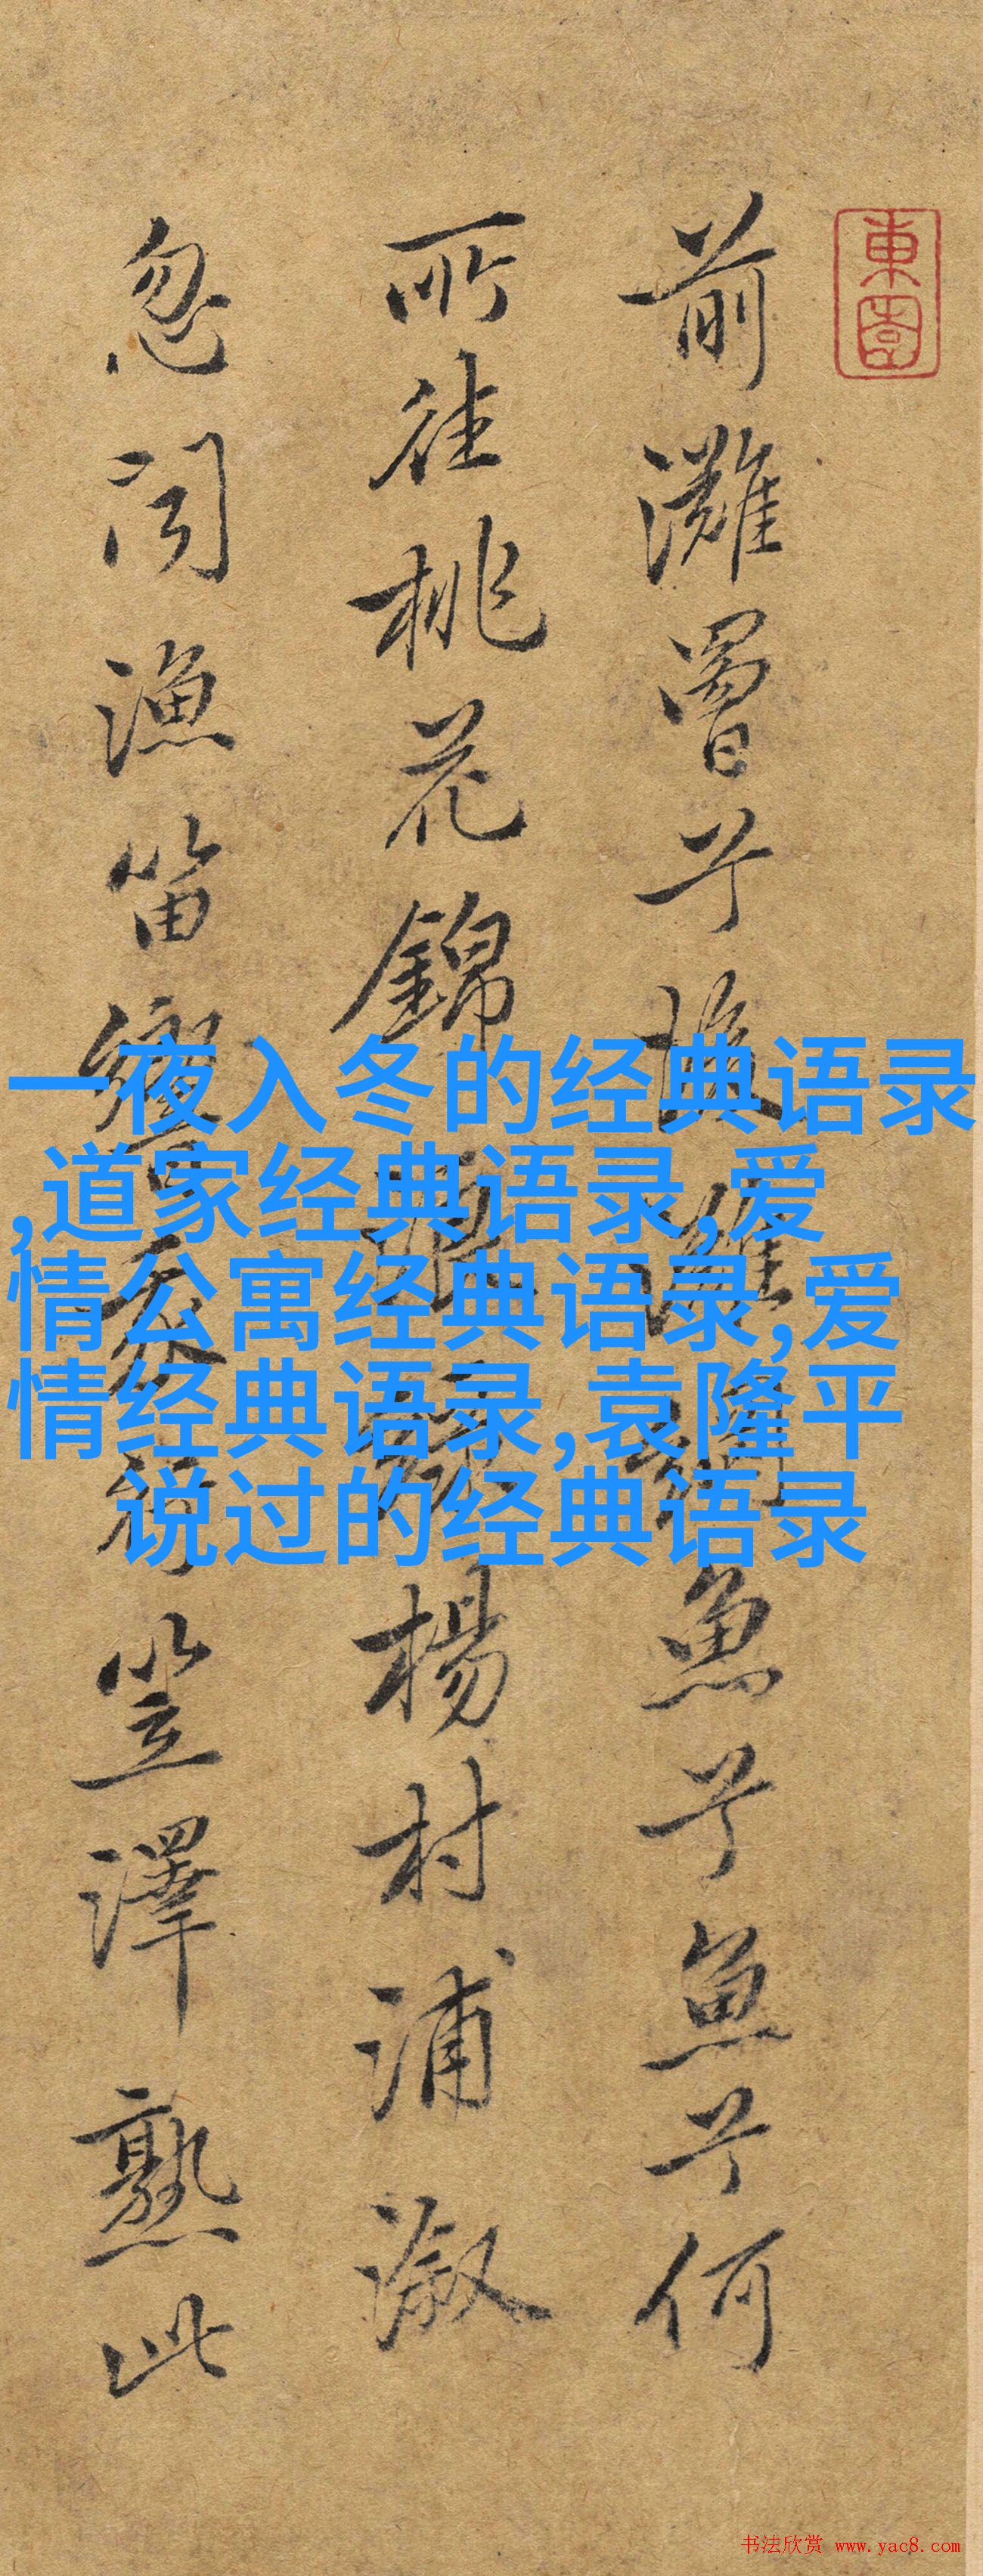 前灘罾兮後灘網魚兮魚兮何
所往桃花錦浪綠楊村浦漵
忽聞漁笛響我行笠澤熟此
一夜入冬的经典语录
,道家经典语录,爱
情公寓经典语录,爱
情经典语录,袁隆平
说过的经典语录
书法欣赏 www.yac8.com